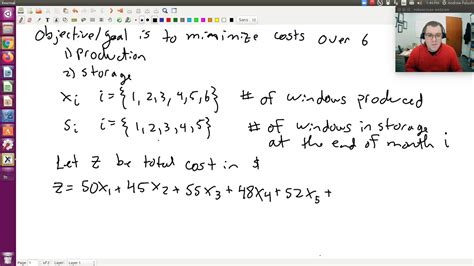 Objective/goal is to minimize costs over 6
1) production
2) storage
xi i={1,2,3,4,5,6} # of windows produced
si i={1,2,3,4,5} # of windows in storage
at the end of month i
Let Z be total cost in $
Z=50x1+45x2+55x3+48x4+52x5+